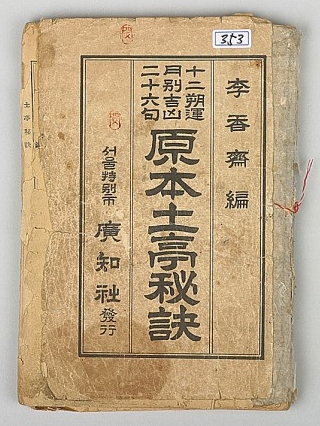 353
李香齋編
十二朔運
月別吉凶
二十六句
原本土亭秘訣
서울特別市 廣知社 發行
土亭秘訣